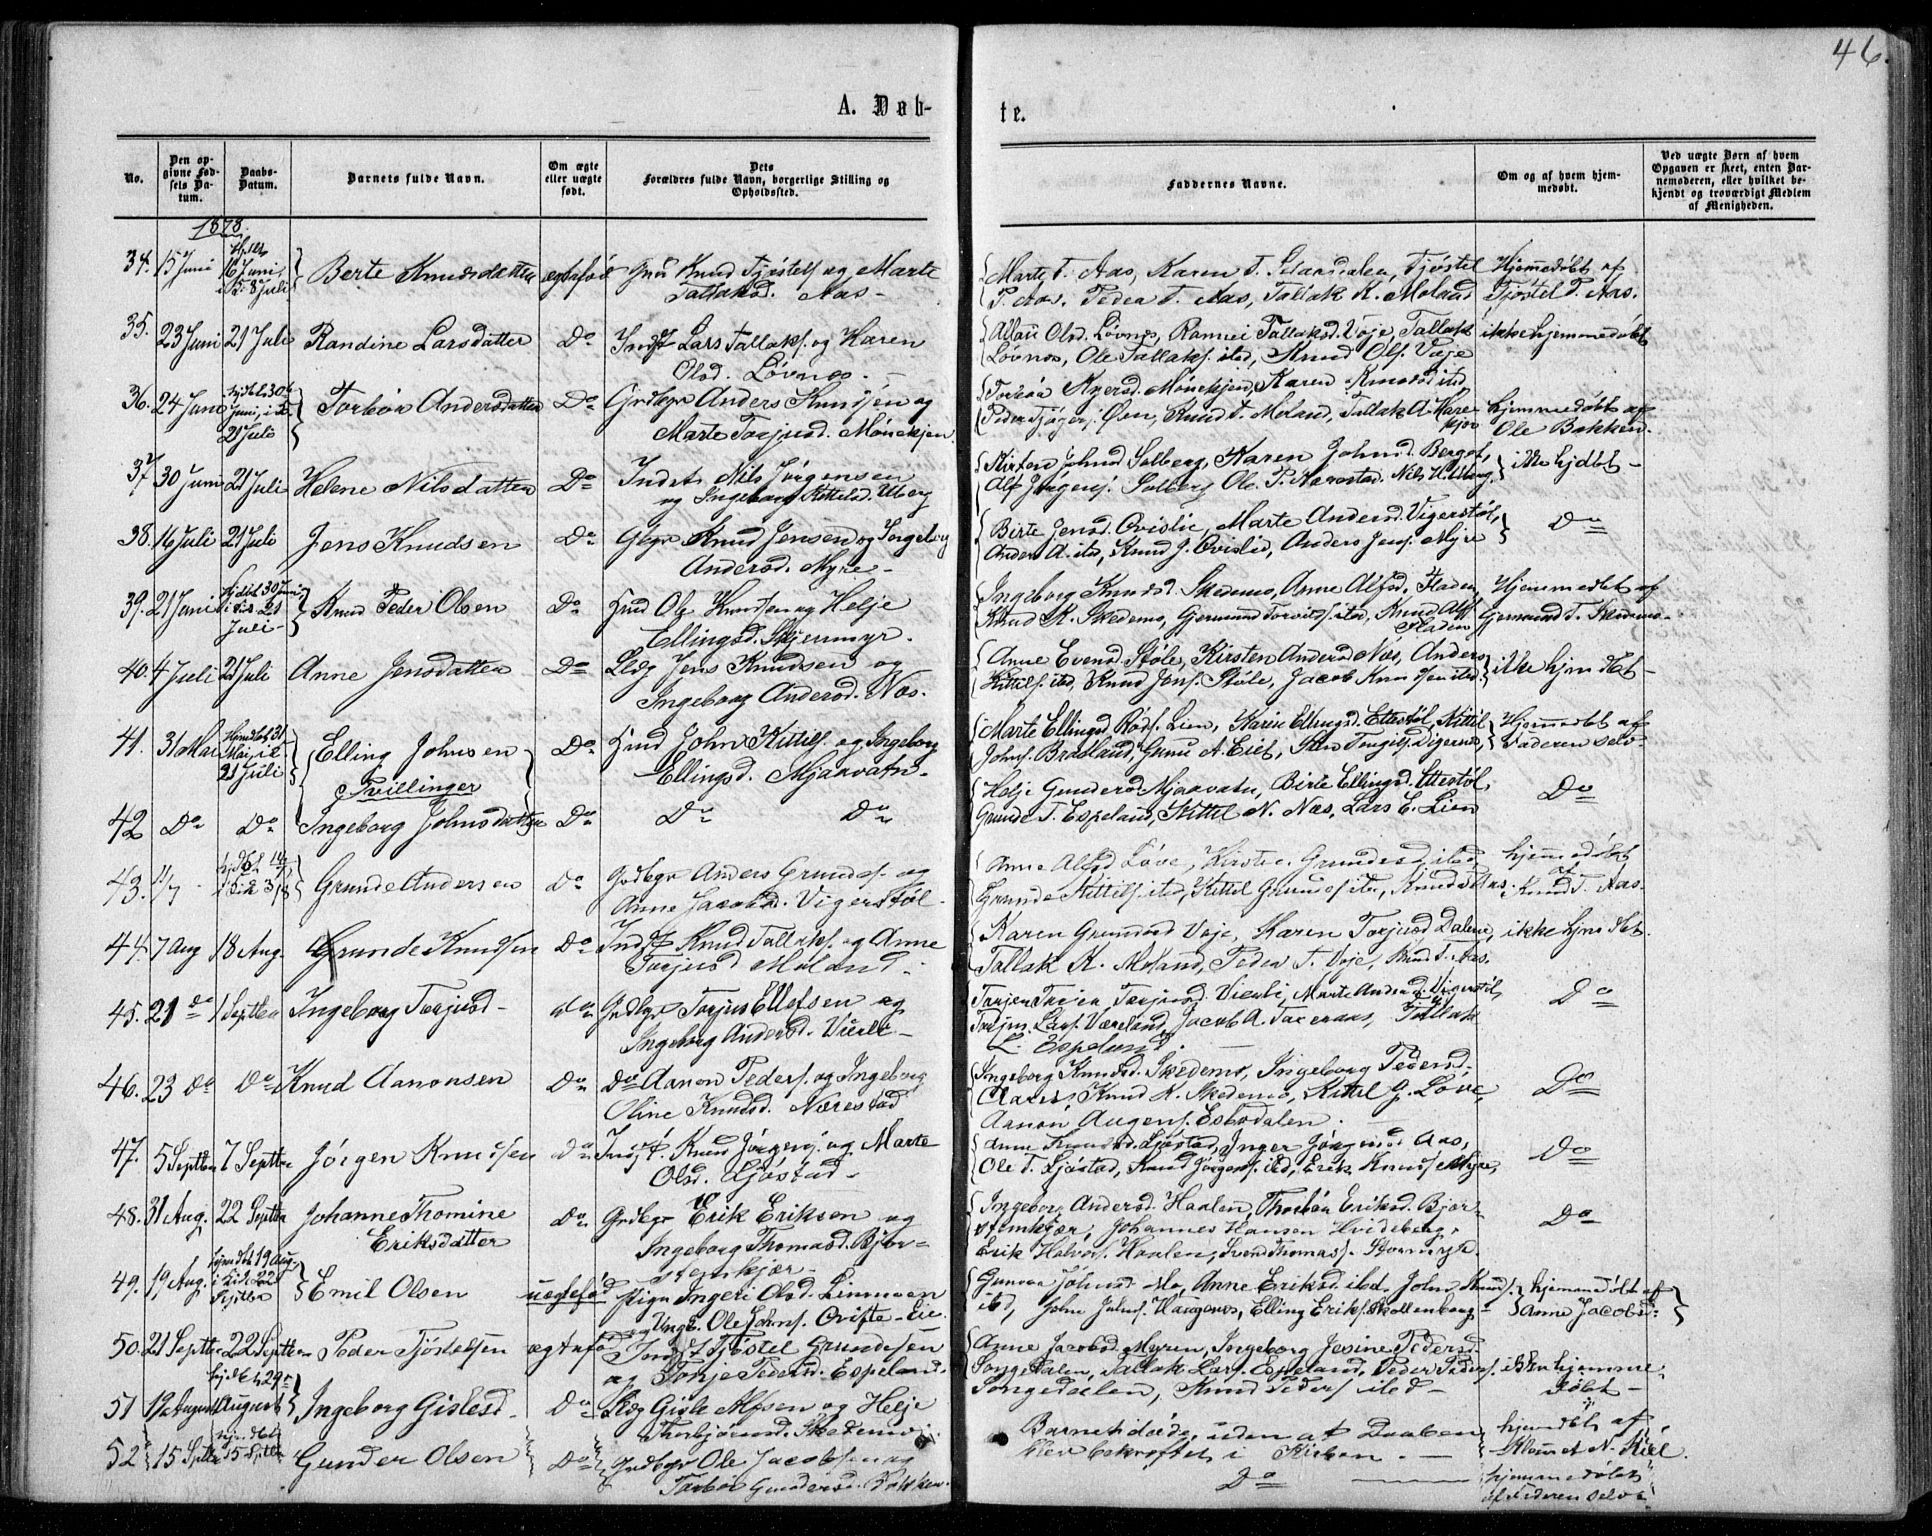 46.
A. Døb-
te.
No.
Den op-
givne Fød-
sels Da-
tum.
Daabs-
Datum.
Barnets fulde Navn.
Om ægte
eller uægte
født.
Dets
Forældres fulde Navn, borgerlige Stilling og
Opholdssted.
Faddernes Navne.
Om og af hvem hjem-
medøbt.
Ved uægte Børn af hvem
Opgaven er skeet, enten Bar-
nemoderen, eller hvilket be-
kjendt og troværdigt Medlem
af Menigheden.
1878.
34. 15 Juni 16 Juni, i 8 Juli Berte Knudsdatter ægtefød Knud Tjøstels og Marte
Tallaksd. Aas-
Marte T. Aas, Karen T. Tjøstel
P. Aas, Peder T. Aas, Tallak K. Moland
Hjemmedøbt af
Tjøstel P. Aas.
35. 23 Juni 21 Juli Randine Larsdatter Do Indst Lars Tallaks. og Karen
Olsd. Løvnes.-
Olsd. Løvnes, Tallaksd. Voje, Tallak
Løvnes, Ole Tallaks. ibd, Knud Ols. Voje
ikke hjemmedøbt
36. 24 Juni hjdbt 30te Juni, i K. 21 Juli Torbør Andersdatter Do Grdbgr Anders Knudsen og
Marte Torjusd. Mønekjen
Torbør Mønekjen, Karen Knudsd ibd,
Peder Øen, Knud T. Moland, Tallak A. Hare-
hjemmedøbt af
Ole Bakken.
37. 30 Juni 21 Juli Helene Nilsdatter Do Indst Nils Jørgensen
og Ingeborg Kittelsd. Uberg
Kirsten Johnsd Solberg, Karen Johnsd. Berget,
Alf Jørgens. Solberg, Ole P. Nærestad, Nils H. Uberg.
ikke hjdbt -
38. 16 Juli 21 Juli Jens Knudsen Do Gbgr Knud Jensen og Ingeborg
Andersd. Myre-
Birte Jensd. Ovislie, Marte Andersd. Vigerstøl,
Anders A. ibd, Knud J. Ovislid, Anders Jens. Myre
Do
39. 21 Juni hjdbt 30 Juni, i Kir. 21 Juli- Knud Peder Olsen Do Hmd Ole Knudsen og Helje
Ellingsd. Skjermyr.
Ingeborg Knudsd. Skedemo, Anne Alfsd. Fladen,
Knud K. Skedemo, Gjermund Torvilds. ibd, Knud Alfs
Fladen
Hjemmedbt af
Gjermund T. Skedemo-
40. 4 Juli 21 Juli Anne Jensdatter Do Jens Knudsen og
Ingeborg Andersd. Næs.
Anne Evensd Støle, Kirsten Andersd Næs, Anders
Kittils. ibd, Knud Jens. Støle, Jacob Knudsen ibd
ikke hjem dbt -
41. 31 Mai Hjemdbt 31 Mai, i K. 21 Juli Elling Johnsen Do Hmd John Kittils. og Ingeborg
Ellingsd. Mjaavatn-
Tvillinger
Marte Ellingsd Lien, Karen Ellingsd. Ettestøl, Kittil
Johns. Bradland, A. Eiet, Tengils.
Hjemmedbt af
Faderen selv-
42 Do Do Ingeborg Johnsdatter Do Do Do
Helje Gundersd Mjaavatn, Birte Ellingsd. Ettestøl,
Grunde T. Espeland, Kittel N. Næs, Lars E. Lien
Do
43. 11/7 hjdbt 14/7, i Kir 3/8 Grunde Andersen Do Grdbgr Anders Grundes. og
Anne Jacobsd. Vigerstøl-
Anne Alfsd Løve, Kirstie Grundesd ibd,
Grunde Kittils. ibd, Kittil Grundes ibd, Knud T. Aas.
hjemmedøbt
af
Knud T. Aas.
44. 7 Aug 18 Aug. Grunde Knudsen Do Indst Knud Tallaks. og Anne
Torjusd Moland-
Karen Grundesd Voje, Karen Torjusd Dalene,
Tallak K. Moland, Peder T. Voje, Knud T. Aas.
ikke hjem dbt.
45. 21 do 1 Septbr Ingeborg Torjusd- do Grdbgr Torjus Ellefsen og
Ingeborg Andersd. Vierli-
Torjusd. Vierli, Marte Andersd. Vigerstøl,
Torjus Lars. Væreland, Jacob A. Tallak
L. Espeland.
Do
46. 23 Do Do Knud Aanonsen Do Do Aanon Peders. og Ingeborg
Oline Knudsd. Nærestad
Ingeborg Knudsd. Skedemo, Ingeborg Pedersd.
Knud K. Skedemo, Kittel G. Løve,
Aanon Augens. Espdalen.
Do
47. 5 Septbr 7 Septbr Jørgen Knudsen Do Indst. Knud Jørgens. og Marte
Olsd. Ljøstad-
Anne Knudsd. Ljøstad, Inger Jørgensd Aas,
Ole T. Ljøstad, Knud Jørgens. ibd, Erik Knuds Myre,
Do
48. 31 Aug. 22 Septbr Johanne Thomine
Eriksdatter
Do Grdbgr Erik Eriksen og
Ingeborg Thomasd. Bjor-
stenkjær-
Ingeborg Andersd. Haalen, Thorbør Eriksd. Bjor-
stenkjær, Johannes Hansen Hvideberg,
Erik Halvors. Haalen, Svend Thomass.
Do
49. 19 Aug. hjemdbt 19 Aug, i Kirk 22 Septbr Emil Olsen uægtefød Pige Ingeri Olsd. Linmoen
og Ungk. Ole Johns. Ovifte-Eie.
Gunvor Johnsd Mo, Anne Eriksd. ibd, John Knuds.
ibd, John Johns. Haugenes, Elling Eriks. Skollenborg-
hjemmedøbt af
Anne Jacobsd.
50. 21 Septbr 22 Septbr Peder Tjøstelsen ægtefø Indst Tjøstel Grundesen
og Tonje Pedersd. Espeland.
Anne Jacobsd. Myren, Ingeborg Jesine Pedersd.
Songedalen, Tallak Lars. Espeland, Peder Peders.
Songedalen, Knud Peders ibd-
ikke hjemme
døbt-
51 19 August hjdbt 29de August Ingeborg Gislesd. Do Gisle Alfsen og Helje
Thorbjørnsd. Skedemo.
Barnet døde, uden at Daaben
blev bekræftet i Kirken.-
hjemdbt af
N. Kiil.
52 15 Septbr hjemdbt 15 Septbr Gunder Olsen Do Grdbgr Ole Jacobsen og
Torbør Gundersd. Bakken.
Do
hjemmedøbt
af Faderen selv-